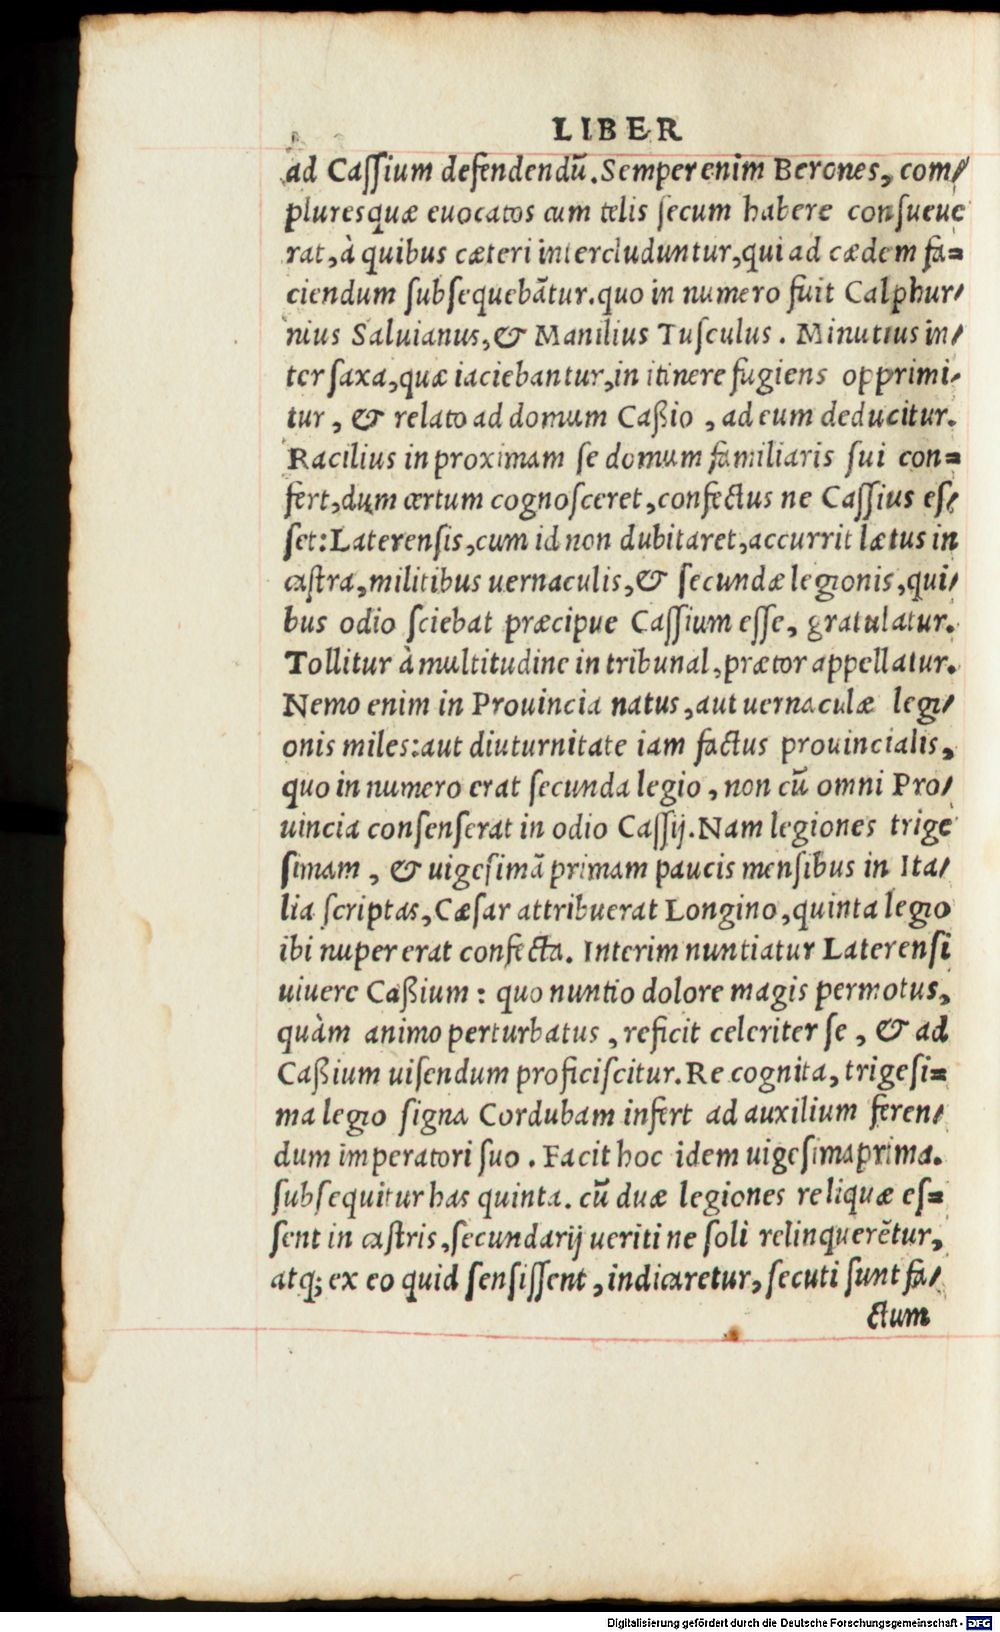 LIBER
ad Caſſium defendendū. Semper enim Berones, com⸗
plures quæ euocatos cum telis ſecum habere conſueue
rat, à quibus cæteri intercluduntur, qui ad cædem fa⸗
ciendum ſubſequebātur. quo in numero fuit Calphur⸗
nius Saluianus, & Manilius Tuſculus. Minutius in⸗
ter ſaxa, quæ iaciebantur, in itinere fugiens opprimi⸗
tur, & relato ad domum Caßio, ad eum deducitur.
Racilius in proximam ſe domum familiaris ſui con⸗
fert, dum certum cognoſceret, confectus ne Caſſius eſ⸗
ſet: Laterenſis, cum id non dubitaret, accurrit lætus in
caſtra, militibus uernaculis, & ſecundæ legionis, qui⸗
bus odio ſciebat præcipue Caſſium eſſe, gratulatur.
Tollitur à multitudine in tribunal, prætor appellatur.
Nemo enim in Prouincia natus, aut uernaculæ legi⸗
onis miles: aut diuturnitate iam factus prouincialis,
quo in numero erat ſecunda legio, non cū omni Pro⸗
uincia conſenſerat in odio Caſſij. Nam legiones trige
ſimam, & uigeſimā primam paucis menſibus in Ita⸗
lia ſcriptas, Cæſar attribuerat Longino, quinta legio
ibi nuper erat confecta. Interim nuntiatur Laterenſi
uiuere Caßium: quo nuntio dolore magis permotus,
quàm animo perturbatus, reficit celeriter ſe, & ad
Caßium uiſendum proficiſcitur. Re cognita, trigeſi⸗
ma legio ſigna Cordubam infert ad auxilium feren⸗
dum imperatori ſuo. Facit hoc idem uigeſimaprima.
ſubſequitur has quinta. cū duæ legiones reliquæ eſ⸗
ſent in caſtris, ſecundarij ueriti ne ſoli relinquerētur,
atq; ex eo quid ſenſiſſent, indicaretur, ſecuti ſunt fa⸗
ctum
Digitalisierung gefördert durch die Deutsche Forschungsgemeinschaft - DFG